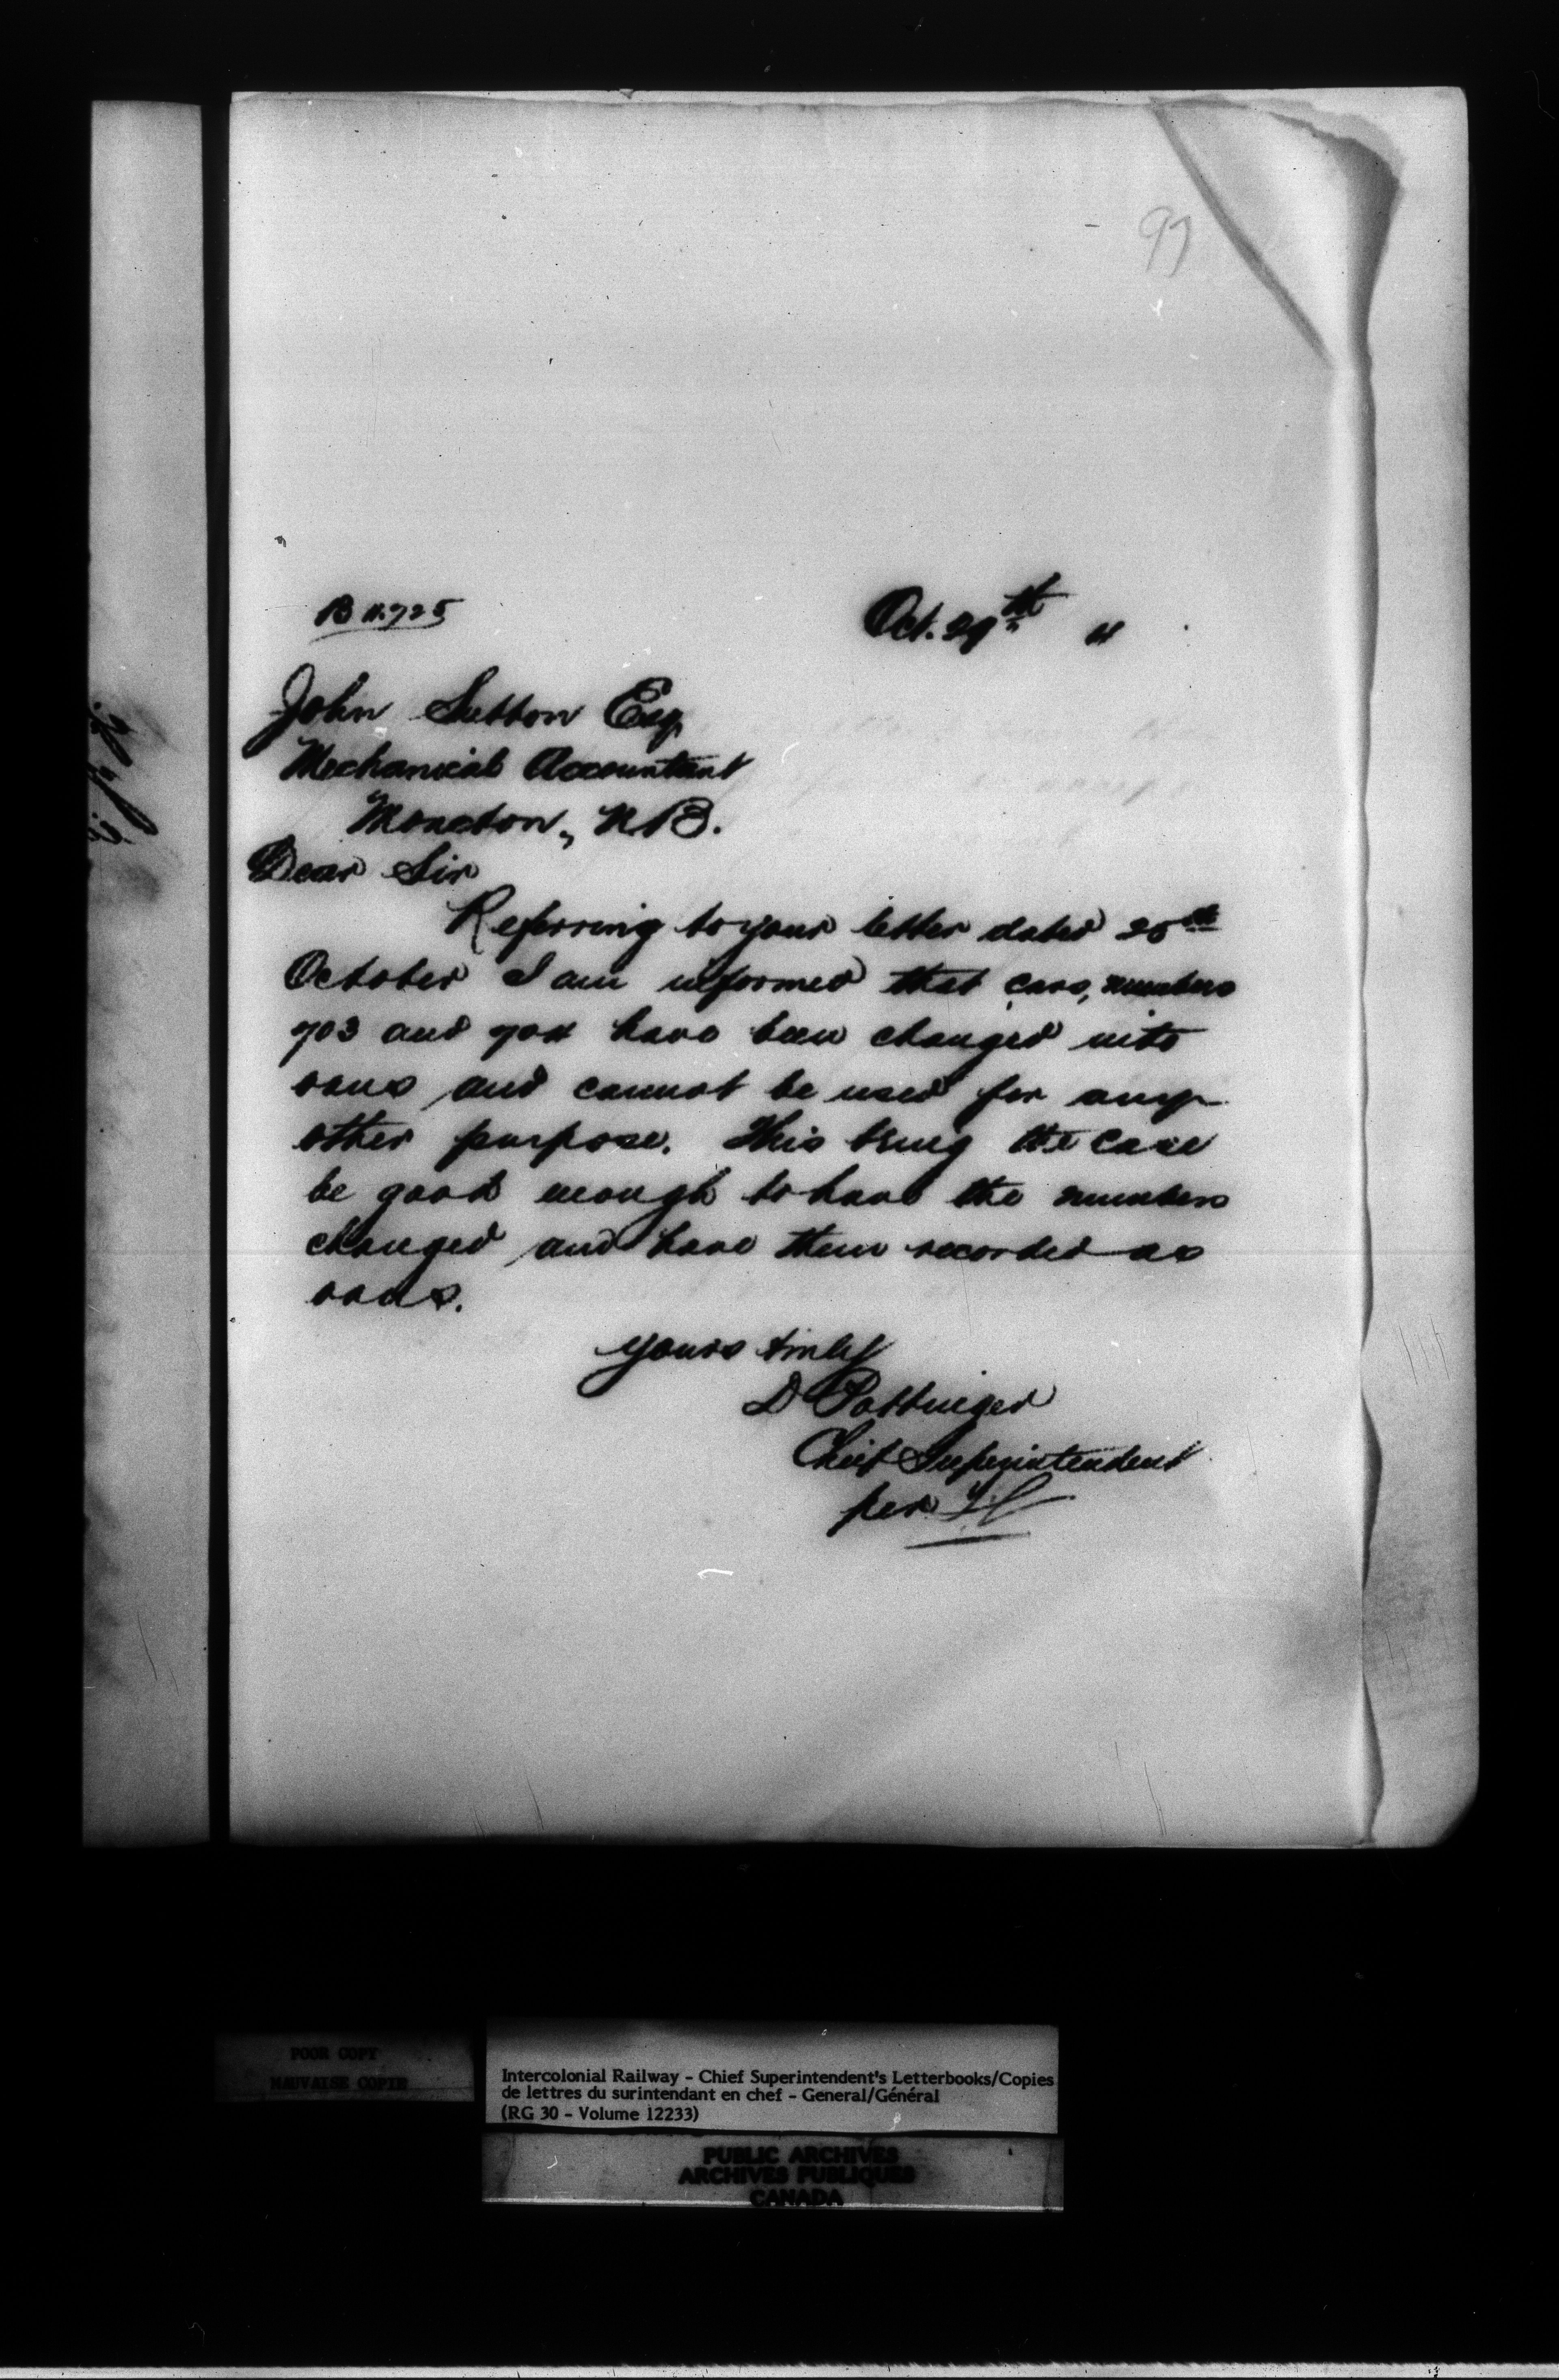 97
B 11.725
Oct. 29th
John Sutton Esq
Mechanical Accountant
Moncton, N.B.
Dear Sir
Referring to your letter dated 25th
October I am informed that cars, numbers
703 and 704 have been changed into
vans and cannot be used for any
other purpose. This being the case
be good enough to have the numbers
changed and have them recorded as
vans.
Yours truly
D Pottinger
Chief Superintendent
per
POOR COPY
MAUVAISE COPIE
Intercolonial Railway - Chief Superintendent's Letterbooks/Copies
de lettres du surintendant en chef - General/Général
(RG 30 - Volume 12233)
PUBLIC ARCHIVES
ARCHIVES PUBLIQUES
CANADA